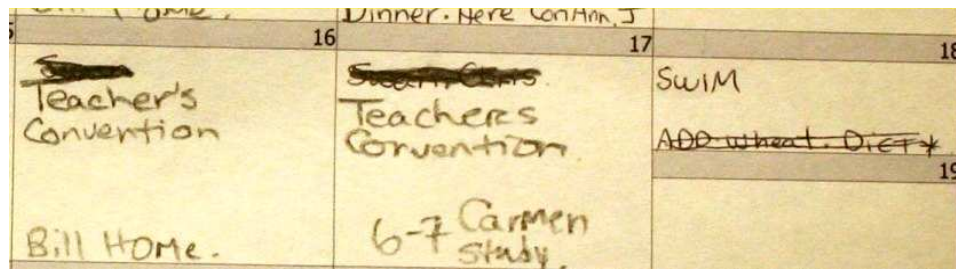 Dinner. Here
16
17
18
Teacher's
Convention
Bill Home.
Teachers
Convention
6-7 Carmen
Study.
SWIM
ADD wheat. DIET
19